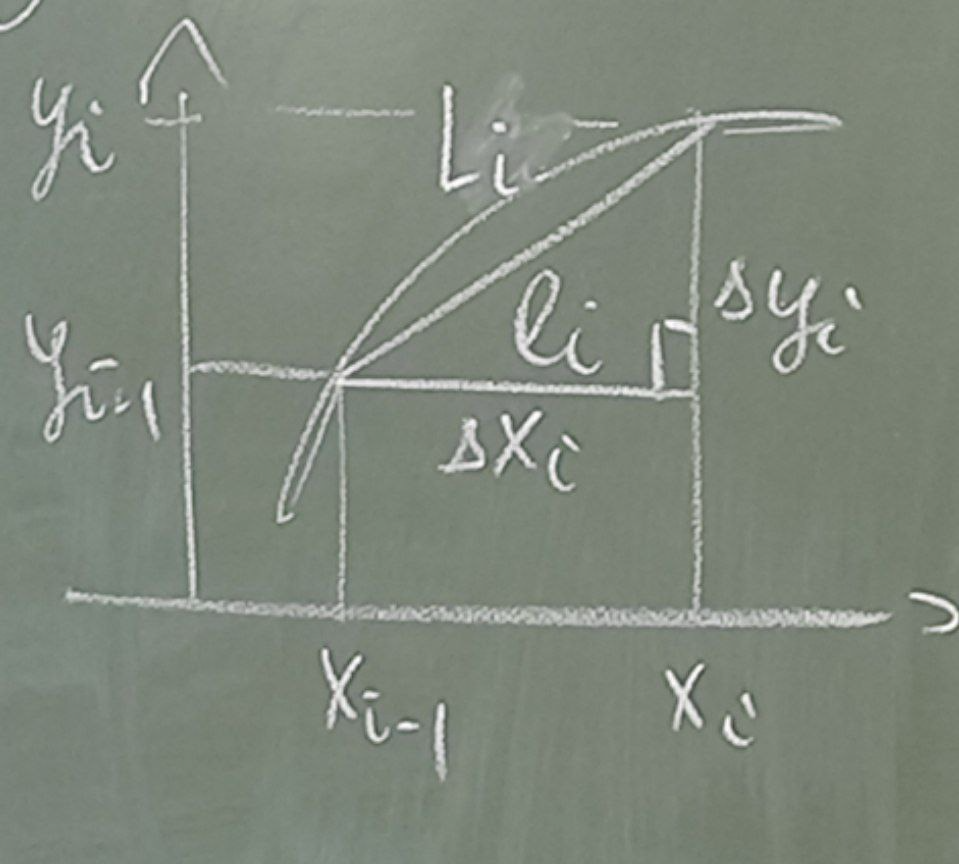 yi
Li
yi-1
li
Δyi
Δxi
xi-1
xi